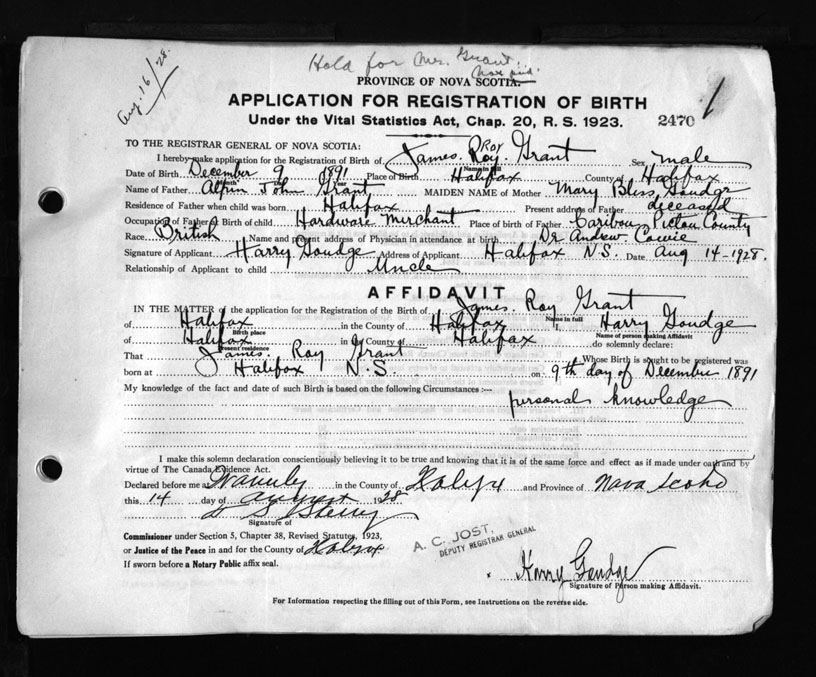 Aug. 16/28.
Hold for Mr. Grant.
PROVINCE OF NOVA SCOTIA.
APPLICATION FOR REGISTRATION OF BIRTH
Under the Vital Statistics Act, Chap. 20, R. S. 1923. 2470 1
TO THE REGISTRAR GENERAL OF NOVA SCOTIA:
Roy
I hereby make application for the Registration of Birth of James. Roy. Grant Sex male
Name in full
Date of Birth December 9 1891 Place of Birth Halifax County of Halifax
Month Year
Name of Father John Grant MAIDEN NAME of Mother Mary Bliss Goudge
Residence of Father when child was born Halifax Present address of Father deceased
Occupation of Father @ Birth of child Hardware Merchant Place of birth of Father Caribou Pictou County
Race British Name and present address of Physician in attendance at birth Dr Andrew Cowie
Signature of Applicant Harry Goudge Address of Applicant Halifax N.S. Date Aug 14-1928.
Relationship of Applicant to child Uncle
AFFIDAVIT
IN THE MATTER of the application for the Registration of Birth of James. Roy Grant
Name in full
of Halifax in the County of Halifax I, Harry Goudge
Birth place Name of person making Affidavit
of Halifax in County of Halifax do solemnly declare:
Present residence
That James. Roy Grant Whose Birth is sought to be registered was
born at Halifax N.S. on 9th day of December 1891
My knowledge of the fact and date of such Birth is based on the following Circumstances :—
personal knowledge
I make this solemn declaration conscientiously believing it to be true and knowing that it is of the same force and effect as if made under oath and by
virtue of The Canada Evidence Act.
Declared before me at Waverley in the County of Halifax and Province of Nova Scotia
this 14 day of August 1928
Signature of
Commissioner under Section 5, Chapter 38, Revised Statutes, 1923,
or Justice of the Peace in and for the County of Halifax
If sworn before a Notary Public affix seal.
A. C. JOST,
DEPUTY REGISTRAR GENERAL
x Harry Goudge
Signature of Person making Affidavit.
For Information respecting the filling out of this Form, see Instructions on the reverse side.